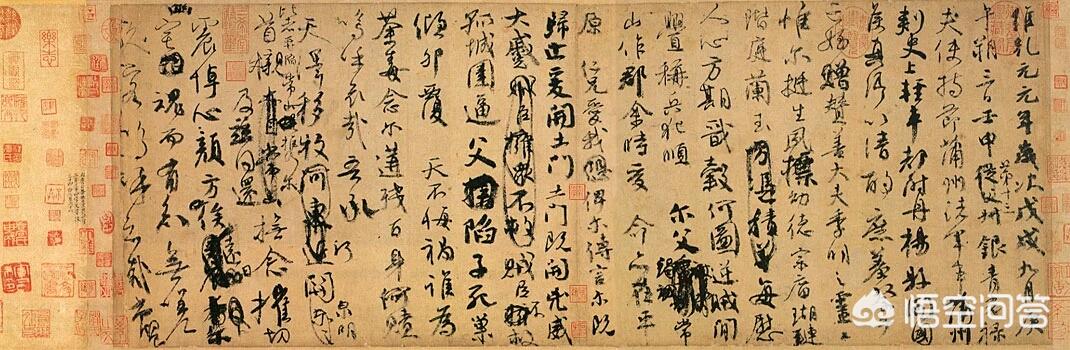 維乾元元年歲次戊戌九月庚
午朔三日壬申第十三叔銀青光祿
夫使持節蒲州諸軍事蒲州
刺史上輕車都尉丹楊縣開國
侯真卿以清酌庶羞祭于
亡姪贈贊善大夫季明之靈曰
惟爾挺生夙標幼德宗廟瑚璉
階庭蘭玉方憑積善每慰
人心方期戩穀何圖逆賊閒
釁稱兵犯順爾父竭誠常
山作郡余時受命亦在平
原仁兄愛我俾爾傳言爾既
歸止爰開土門土門既開兇威
大蹙賊臣擁眾不救
孤城圍逼父陷子死巢
傾卵覆天不悔禍誰為
荼毒念爾遘殘百身何贖
嗚呼哀哉吾承
天澤移牧河關泉明
比者再陷常山攜爾
首櫬及茲同還撫念摧切
震悼心顏方俟遠日
幽宅魂而有知無嗟
久客嗚呼哀哉尚饗
悟空问答